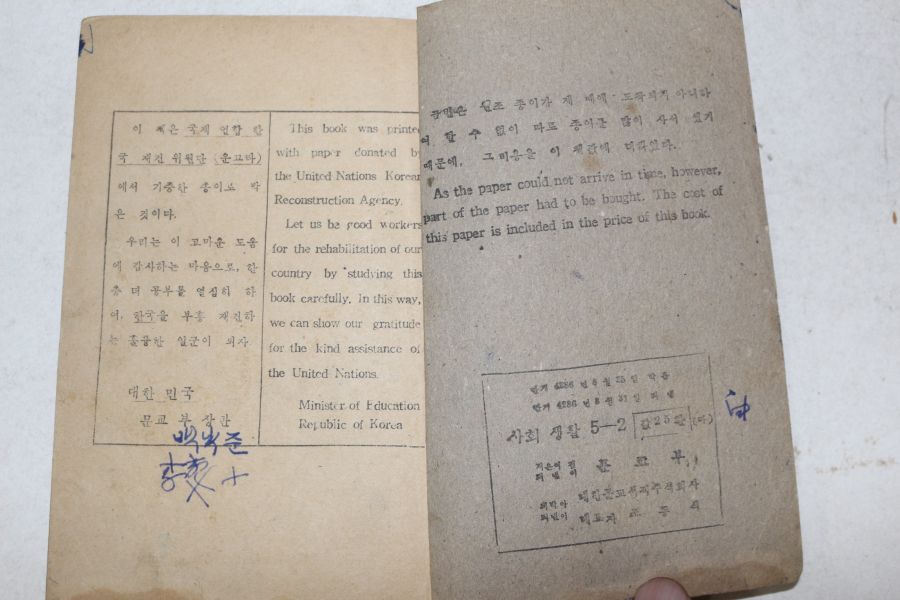 이 책은 국제 연합 한
국 재건 위원단 (운끄라)
에서 기증한 종이로 박
은 것이다.
우리는 이 고마운 도움
에 감사하는 마음으로, 한
층 더 공부를 열심히 하
여, 한국을 부흥 재건하
는 훌륭한 일군이 되자
대한 민국
문교 부 장관
This book was printed
with paper donated by
the United Nations Korean
Reconstruction Agency.
Let us be good workers
for the rehabilitation of our
country by studying this
book carefully. In this way,
we can show our gratitude
for the kind assistance of
the United Nations.
Minister of Education
Republic of Korea
원조 종이가 제 때에 도착되지 아니하
여 할 수 없이 따로 종이를 많이 사서 썼기
때문에, 그 비용을 이 책값에
As the paper could not arrive in time, however,
part of the paper had to be bought. The cost of
this paper is included in the price of this book.
단기 4286 년 8 월 25 일
단기 4286 년 8 월 31 일
사회 생활 5—2 값25환
지은이 겸
펴낸이 문교부
대한문교서적주식회사
대표자